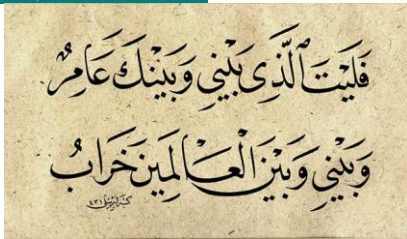 فَلَيْتَ ٱلَّذِي بَيْنِي وَبَيْنَكَ عَامِرٌ
وَبَيْنِي وَبَيْنَ الْعَالَمِينَ خَرَابُ